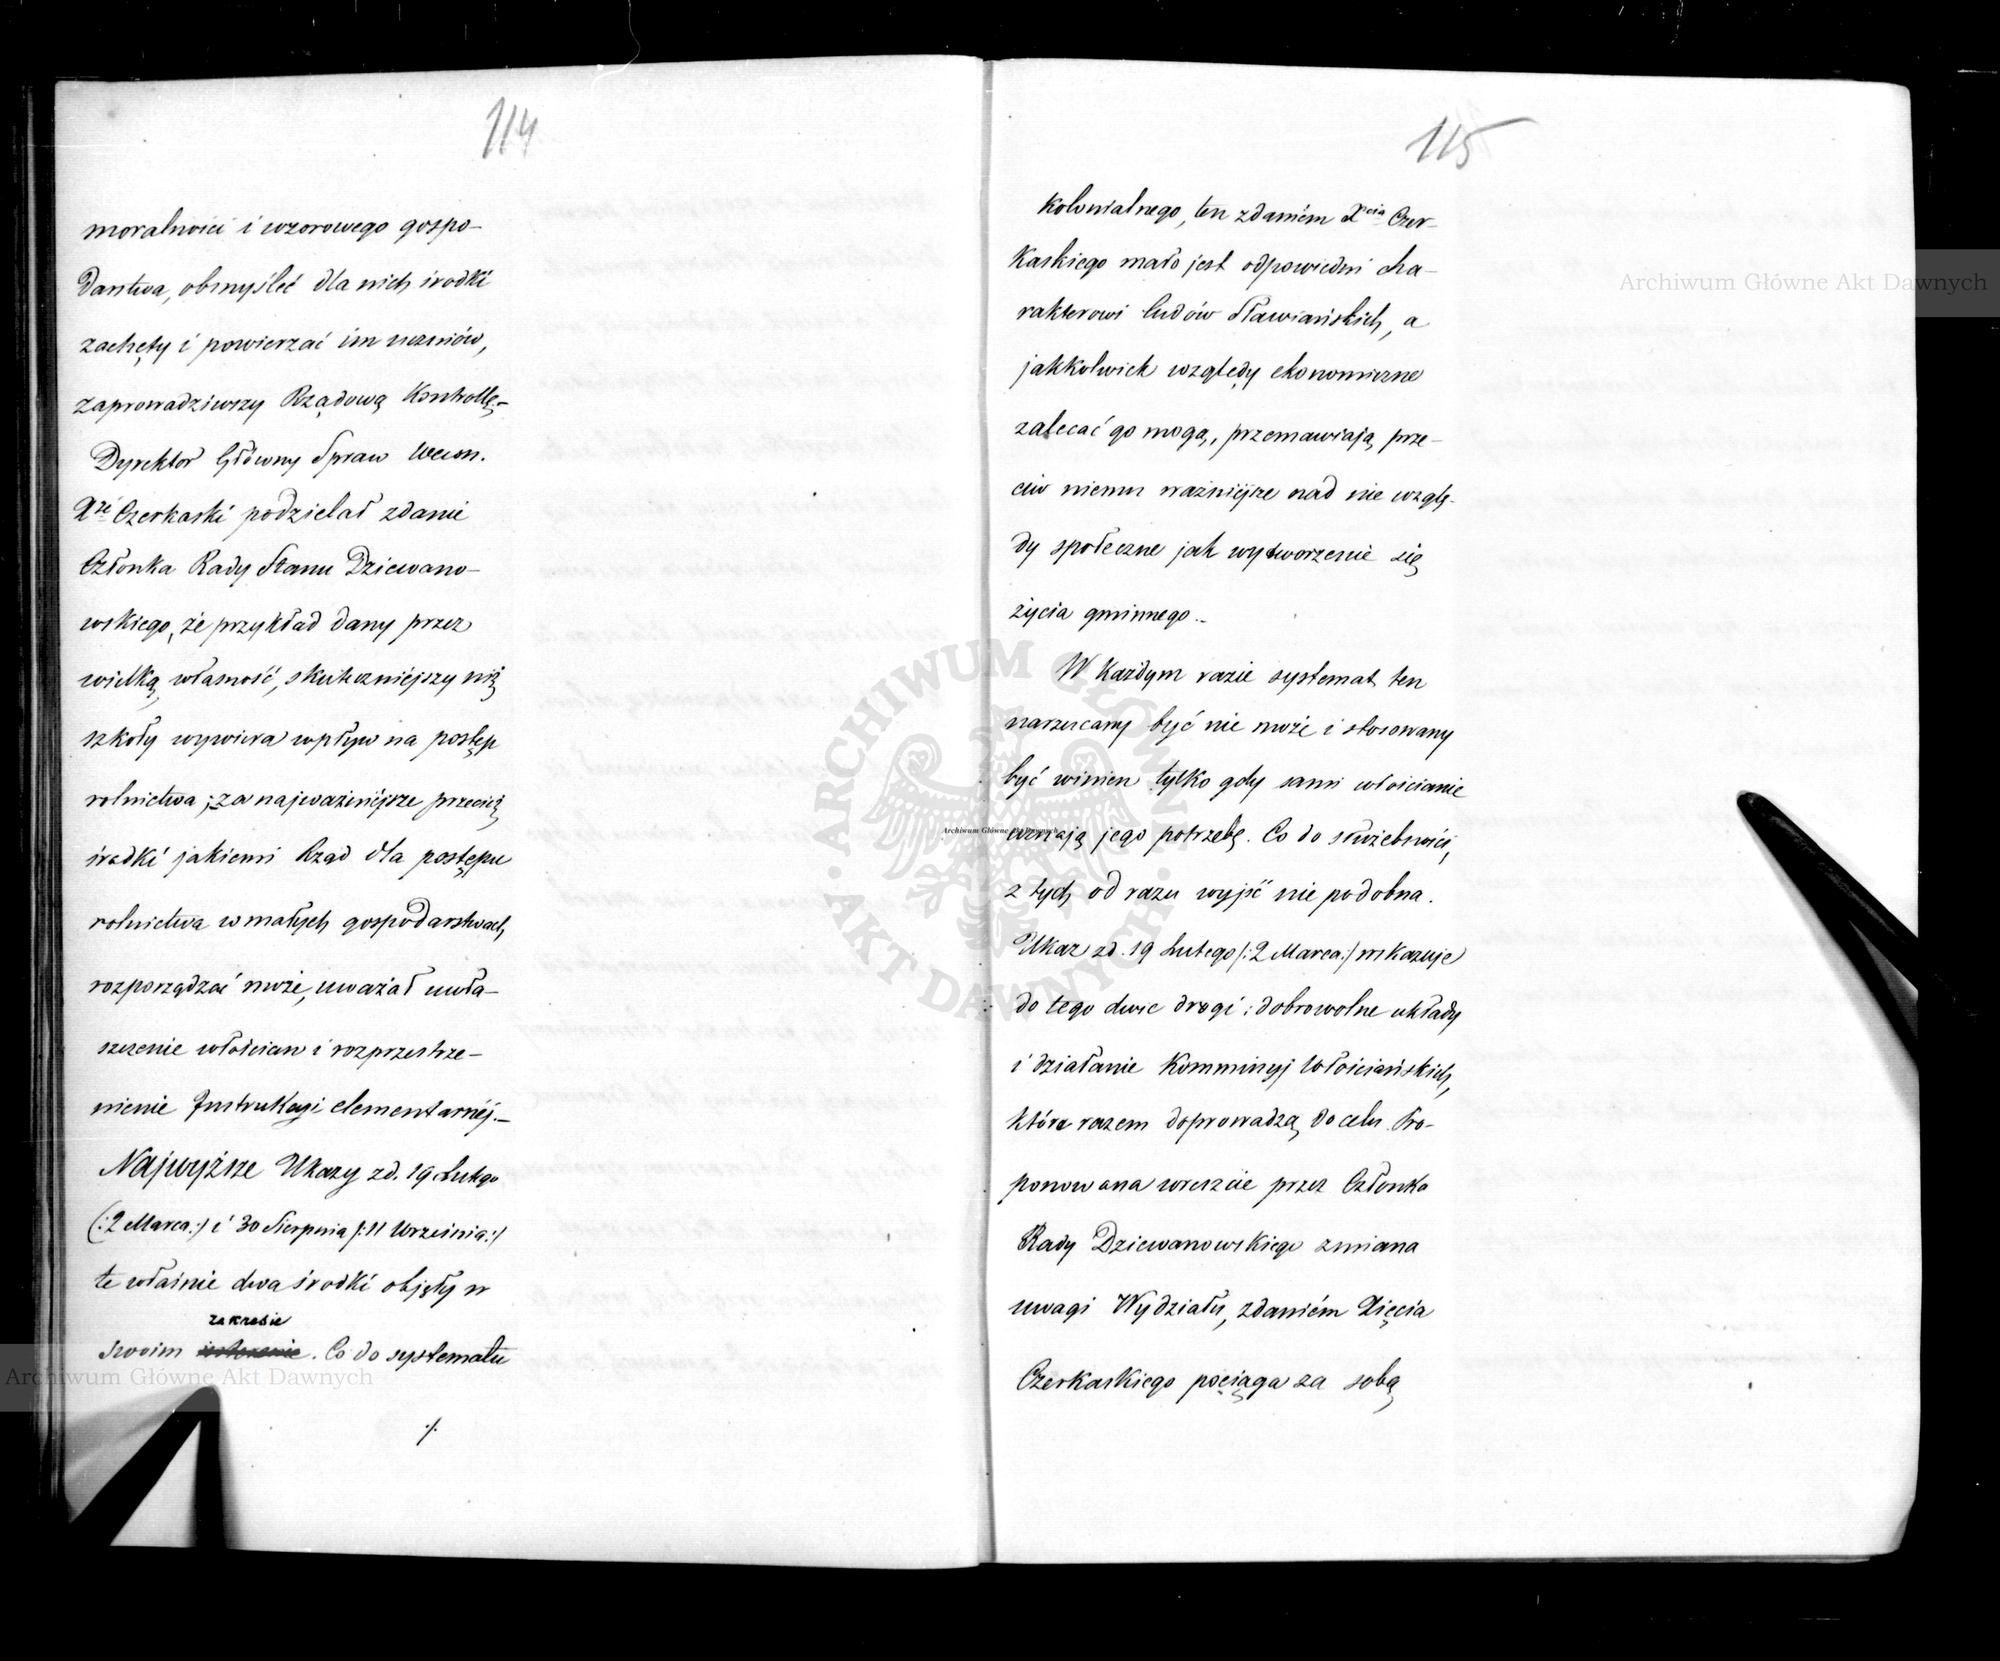 114
moralności i wzorowego gospo-
darstwa, obmyśleć dla nich środki
zachęty i powierzać im uczniów,
zaprowadziwszy Rządową Kontrollę.-
Dyrektor Główny Spraw Wewn.
Xże Czerkaski podzielał zdanie
Członka Rady Stanu Dziewano-
wskiego, że przykład dany przez
wielką własność, skuteczniejszy niż
szkoły wywiera wpływ na postęp
rolnictwa; za najważniejsze przecież
środki jakiemi Rząd dla postępu
rolnictwa w małych gospodarstwach
rozporządzać może, uważał uwła-
szczenie włościan i rozprzestrze-
nienie Instrukcyi elementarnéj.-
Najwyższe Ukazy z d. 19 Lutego
(:2 Marca:) i 30 Sierpnia /:11 Września:/
te właśnie dwa środki objęły w
zakresie
swoim . Co do systematu
./.
115
Kolonialnego, ten zdaniem Xcia Czer-
kaskiego mało jest odpowiedni cha-
rakterowi ludów Sławiańskich, a
jakkolwiek względy ekonomiczne
zalecać go mogą, przemawiają prze-
ciw niemu ważniejsze nad nie wzglę-
dy społeczne jak wytworzenie się
życia gminnego.-
W każdym razie systemat ten
narzucany być nie może i stosowany
być winien tylko gdy sami włościanie
uznają jego potrzebę. Co do służebności,
z tych od razu wyjść nie podobna.
Ukaz z d. 19 Lutego /:2 Marca:/ wskazuje
do tego dwie drogi: dobrowolne układy
i działanie Kommissyj Włościańskich,
które razem doprowadzą do celu. Pro-
ponowana wreszcie przez Członka
Rady Dziewanowskiego zmiana
uwagi Wydziału, zdaniem Xięcia
Czerkaskiego pociąga za sobą
Archiwum Główne Akt Dawnych
Archiwum Główne Akt Dawnych
Archiwum Główne Akt Dawnych
ARCHIWUM GŁÓWNE AKT DAWNYCH